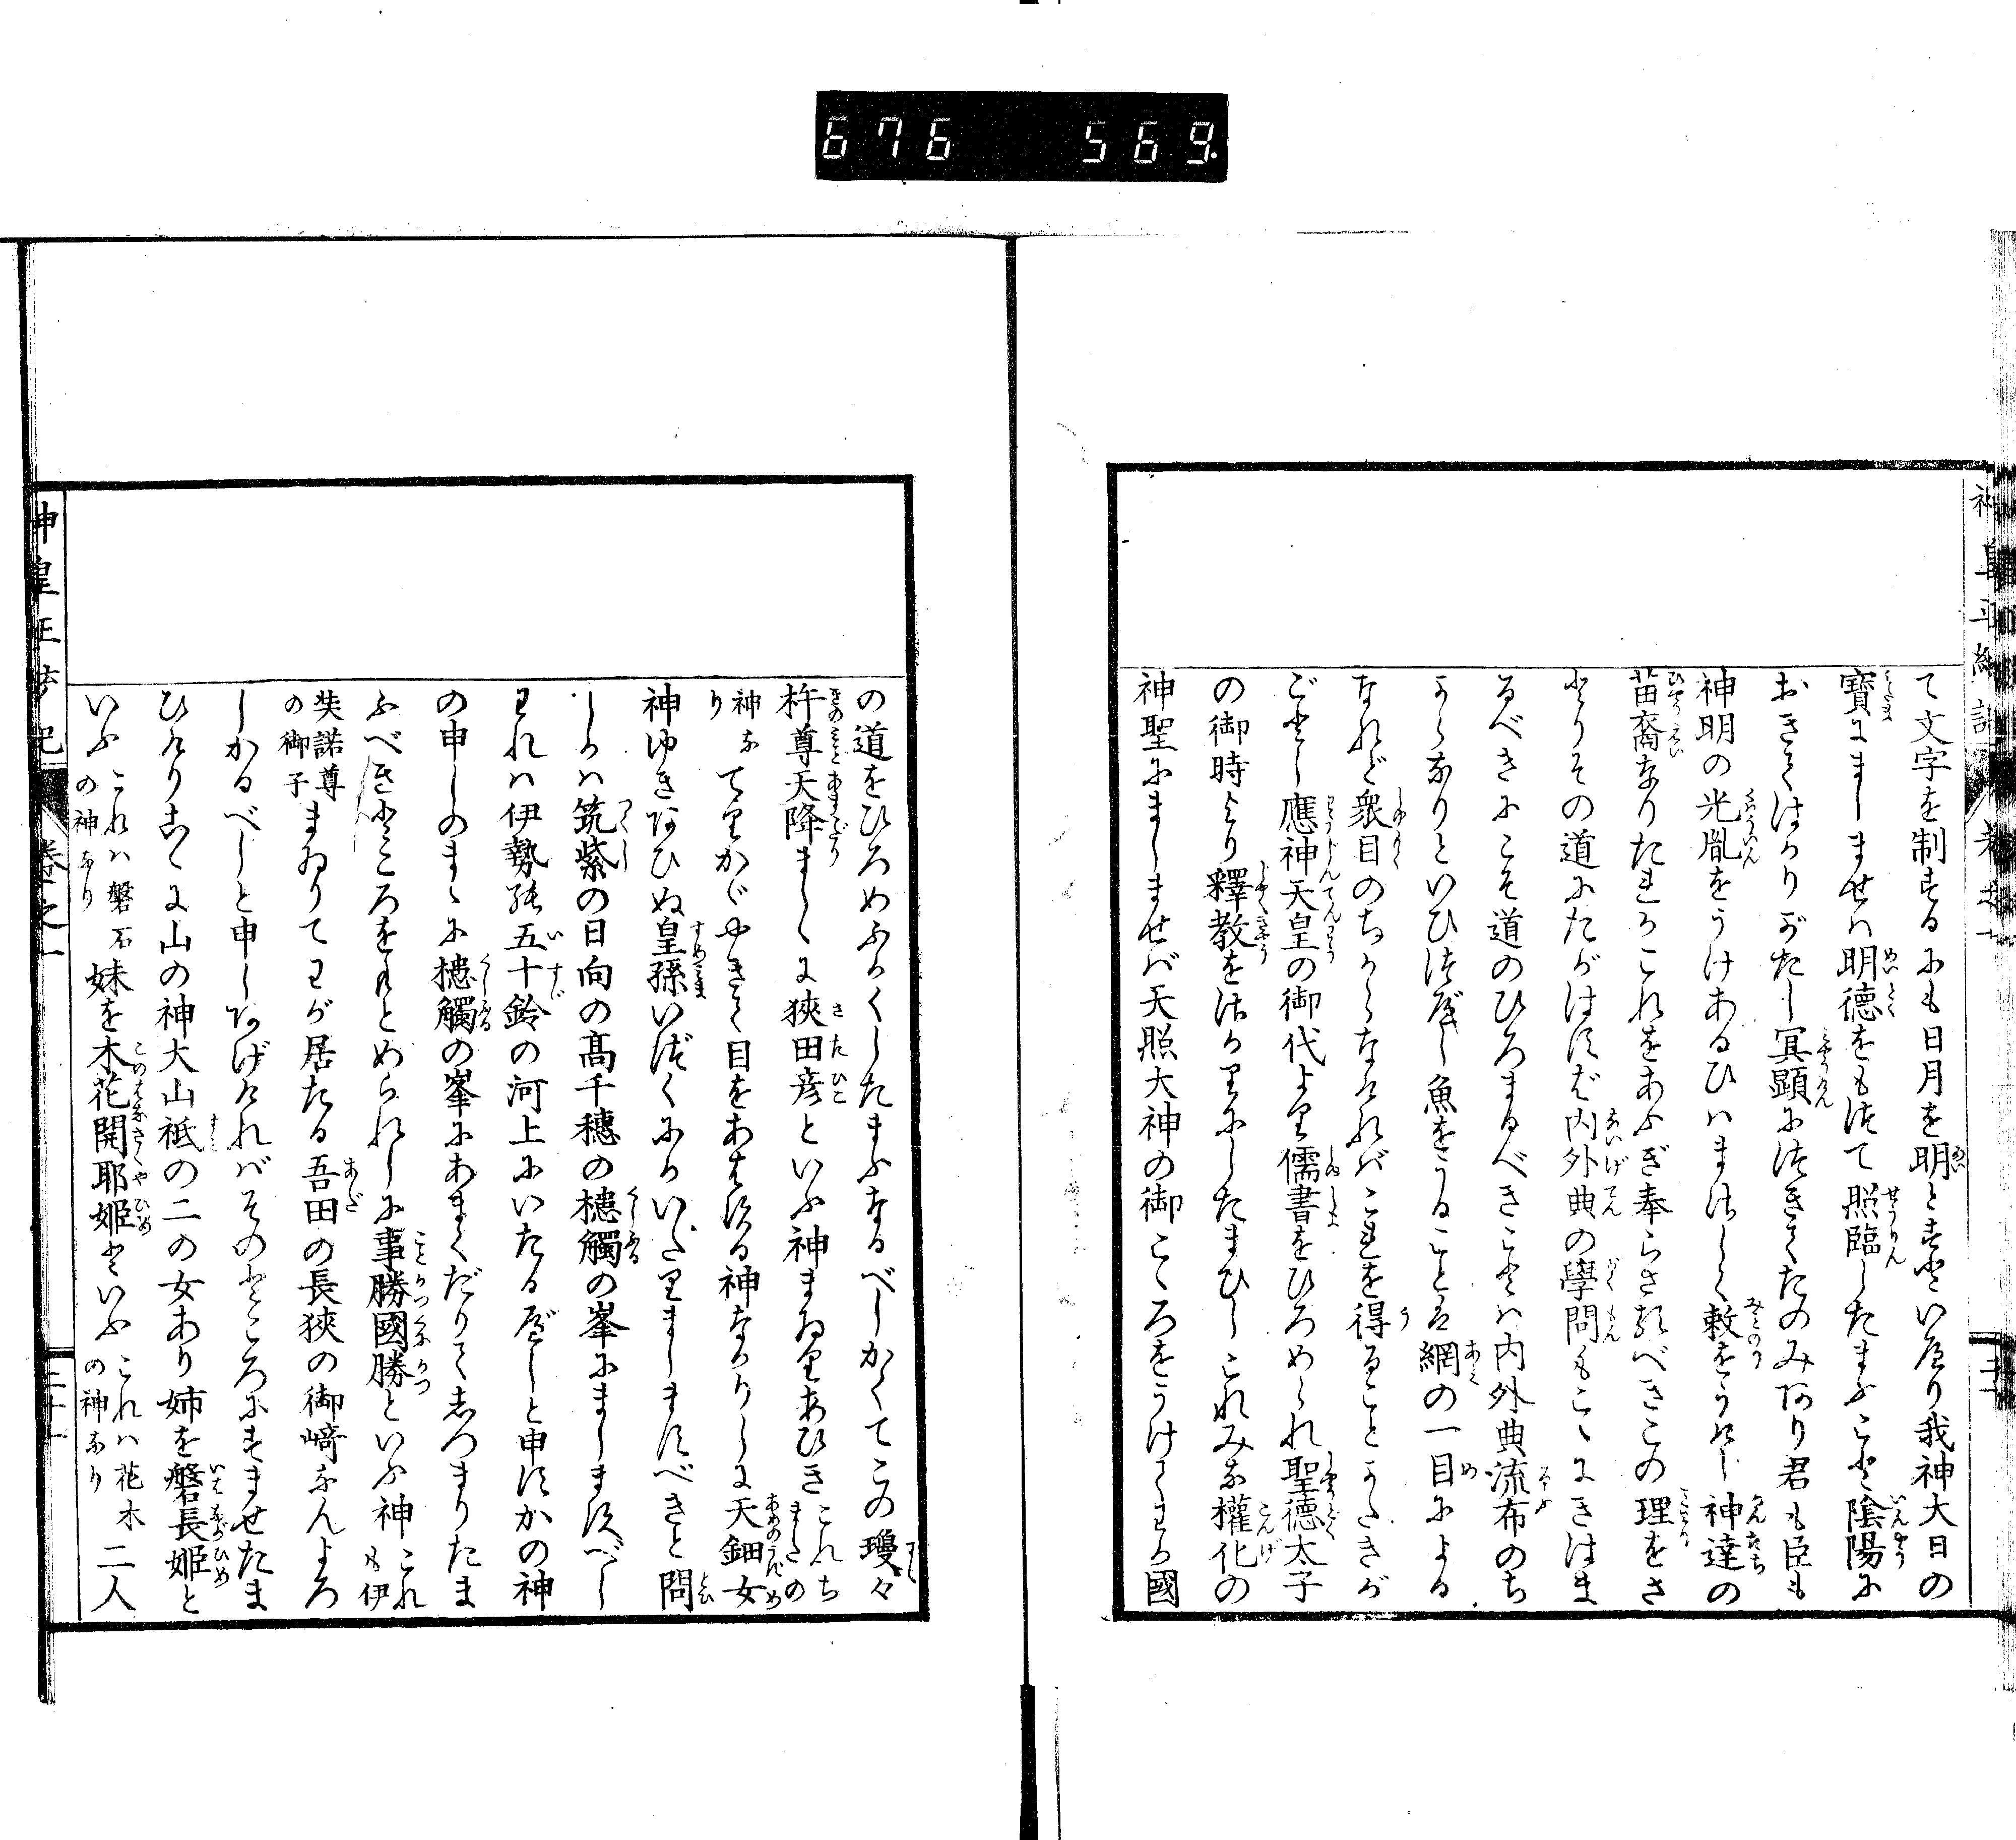 676　569
神皇正統記　卷之一
て文字を制するにも日月を明とすといへり我神大日の
寶にましませハ明徳をもつて照臨したまふこと陰陽に
おきてはかりがたし冥顯につきてたのみあり君も臣も
神明の光胤をうけあるひハまさしく敕をうけし神達の
苗裔なりたれかこれをあふぎ奉らざるべきこの理をさ
とりその道にたがはずば内外典の學問もこゝにきはま
るべきにこそ道のひろまるべきことハ内外典流布のち
からなりといひつべし魚をうることは網の一目による
なれど衆目のちからなければこれを得ることかたきが
ごとし應神天皇の御代より儒書をひろめられ聖德太子
の御時より釋教をさかりにしたまひしこれみな權化の
神聖にましませば天照大神の御こゝろをうけてわが國
の道をひろめふかくしたまふなるべしかくてこの瓊々
杵尊天降ましゝに狹田彦といふ神まゐりあひきこれちまたの
神なりてりかゞやきて目をあはする神なかりしに天鈿女
神ゆきあひぬ皇孫いづくにかいたりましますべきと問
しかハ筑紫の日向の髙千穗の槵觸の峯にましますべし
われハ伊勢の五十鈴の河上にいたるべしと申すかの神
の申しのまゝに槵觸の峯にあまくだりてしづまりたま
ふべきところをもとめられしに事勝國勝といふ神これも伊
弉諾尊の御子まゐりてわが居たる吾田の長狹の御﨑なんよろ
しかるべしと申しあげければそのところにすませたま
ひけりこゝに山の神大山祇の二の女あり姉を磐長姫と
いふこれハ磐石の神なり妹を木花開耶姫といふこれハ花木の神なり二人
神皇正統記　卷之一　二十一